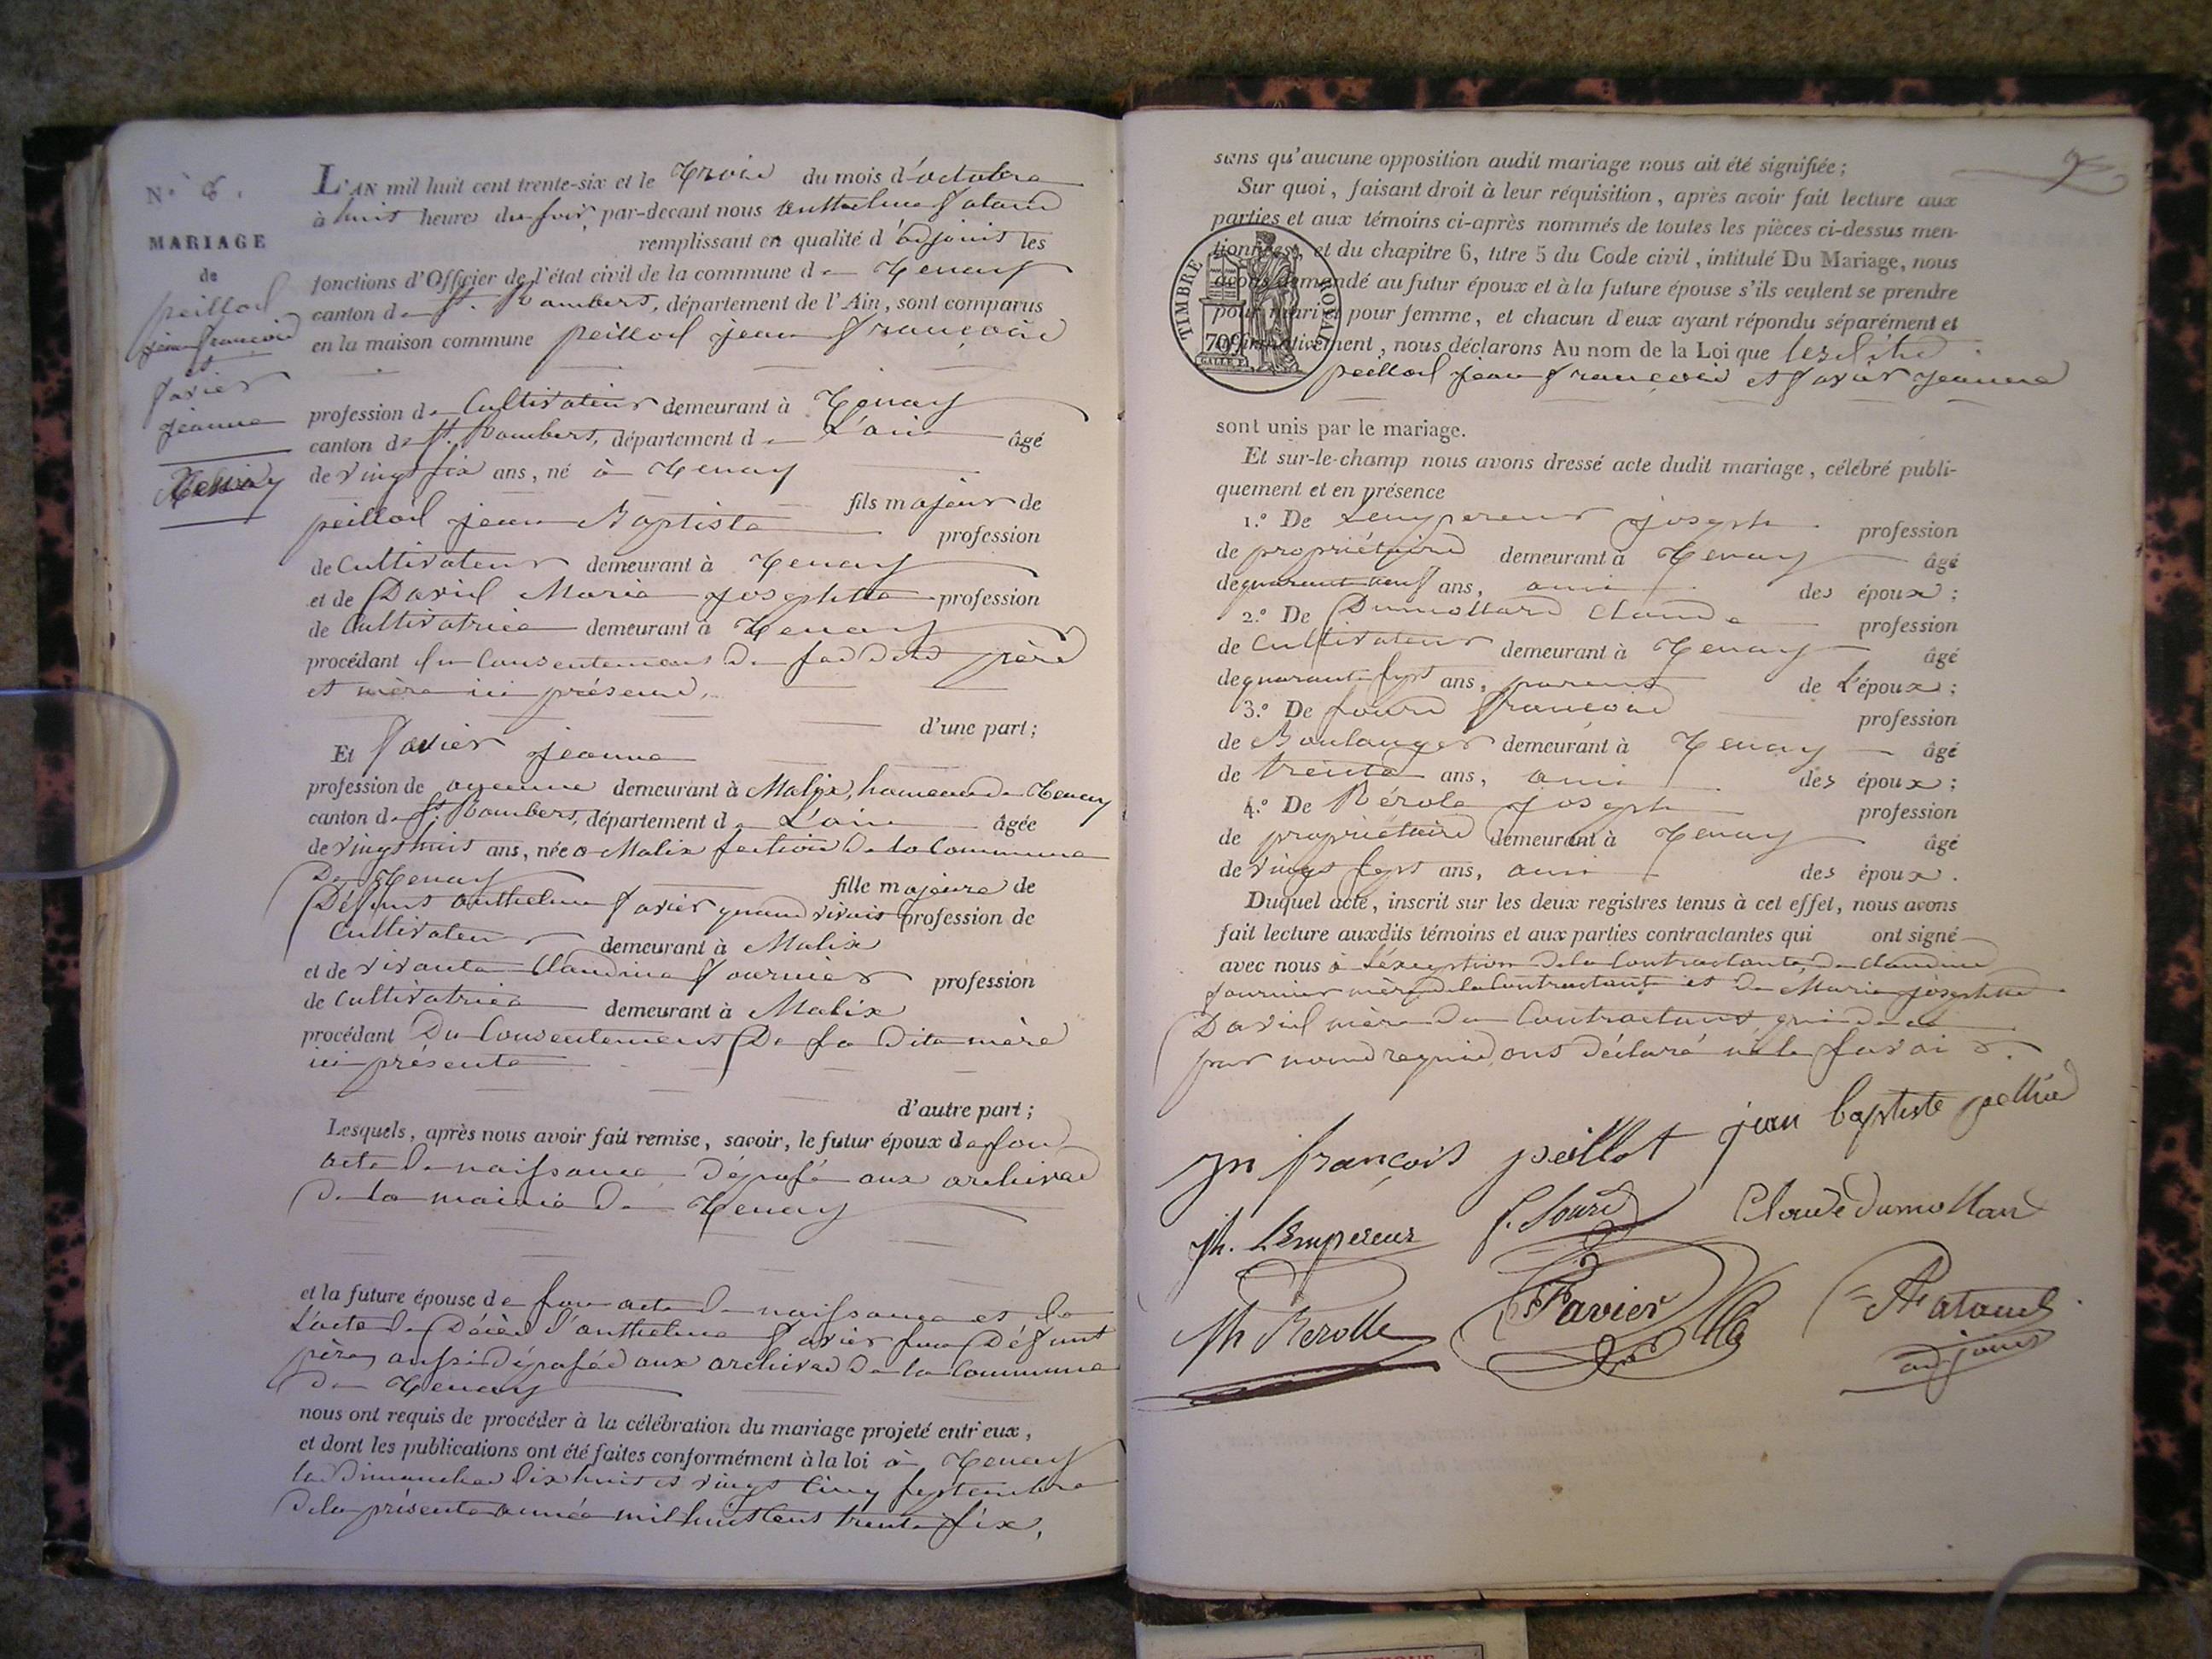 N.° 6.
MARIAGE
de
peillod
jean françois
et
favier
jeanne
Tenay
L'AN mil huit cent trente-six et le Trois du mois d'octobre
à huit heures du soir, par-devant nous Anthelme Fatard
remplissant en qualité d'adjoint les
fonctions d'Officier de l'état civil de la commune de Tenay
canton de St. Rambert, département de l'Ain, sont comparus
en la maison commune peillod jean françois
profession de Cultivateur demeurant à Tenay
canton de St. Rambert, département de L'ain âgé
de vingt six ans, né à Tenay
fils majeur de
peillod jean Baptiste profession
de Cultivateur demeurant à Tenay
et de David Marie josephte profession
de Cultivatrice demeurant à Tenay
procédant du Consentement de ses dits père
et mère ici présend,
d'une part;
Et favier jeanne
profession de aucune demeurant à Malix, hameau de Tenay
canton de St. Rambert, département de L'ain âgée
de vingt huit ans, née à Malix section de la Commune
De Tenay fille majeure de
Défunt anthelme favier quand vivait profession de
Cultivateur demeurant à Malix
et de vivante Claudine fournier profession
de Cultivatrice demeurant à Malix
procédant Du Consentement De sa dite mère
ici présente
d'autre part;
Lesquels, après nous avoir fait remise, savoir, le futur époux de son
acte de naissance déposé aux archives
de la mairie de Tenay
et la future épouse de son acte de naissance et de
L'acte de Décès d'anthelme favier son Défunt
père, aussi déposés aux archives de la Commune
de Tenay
nous ont requis de procéder à la célébration du mariage projeté entr'eux,
et dont les publications ont été faites conformément à la loi à Tenay
les Dimanches dix huit et vingt cinq septembre
de la présente année mil huit cent trente six,
sans qu'aucune opposition audit mariage nous ait été signifiée;
Sur quoi, faisant droit à leur réquisition, après avoir fait lecture aux
parties et aux témoins ci-après nommés de toutes les pièces ci-dessus men-
tionnées, et du chapitre 6, titre 5 du Code civil, intitulé Du Mariage, nous
avons demandé au futur époux et à la future épouse s'ils veulent se prendre
pour mari et pour femme, et chacun d'eux ayant répondu séparément et
affirmativement, nous déclarons Au nom de la Loi que lesdits
peillod jean françois et favier jeanne
TIMBRE ROYAL
70
sont unis par le mariage.
Et sur-le-champ nous avons dressé acte dudit mariage, célébré publi-
quement et en présence
1.° De Lempereur joseph profession
de propriétaire demeurant à Tenay âgé
de quarante neuf ans, ami des époux;
2.° De Dumollard Claude profession
de Cultivateur demeurant à Tenay âgé
de quarante sept ans, parent de l'époux;
3.° De fourd françois profession
de Boulanger demeurant à Tenay âgé
de trente ans, ami des époux;
4.° De Rérole joseph profession
de propriétaire demeurant à Tenay âgé
de vingt sept ans, ami des époux.
Duquel acte, inscrit sur les deux registres tenus à cet effet, nous avons
fait lecture auxdits témoins et aux parties contractantes qui ont signé
avec nous à l'éxception de la Contractante, de claudine
fournier mère de la Contractante et de Marie josephte
David mère du Contractant, qui de ce
par nous requis ont déclaré ne le savoir.
jn françois peillot jean baptiste pellié
jh. LEmpereur f. Sourd Claude dumollard
jh Rerolle Favier
adjoint